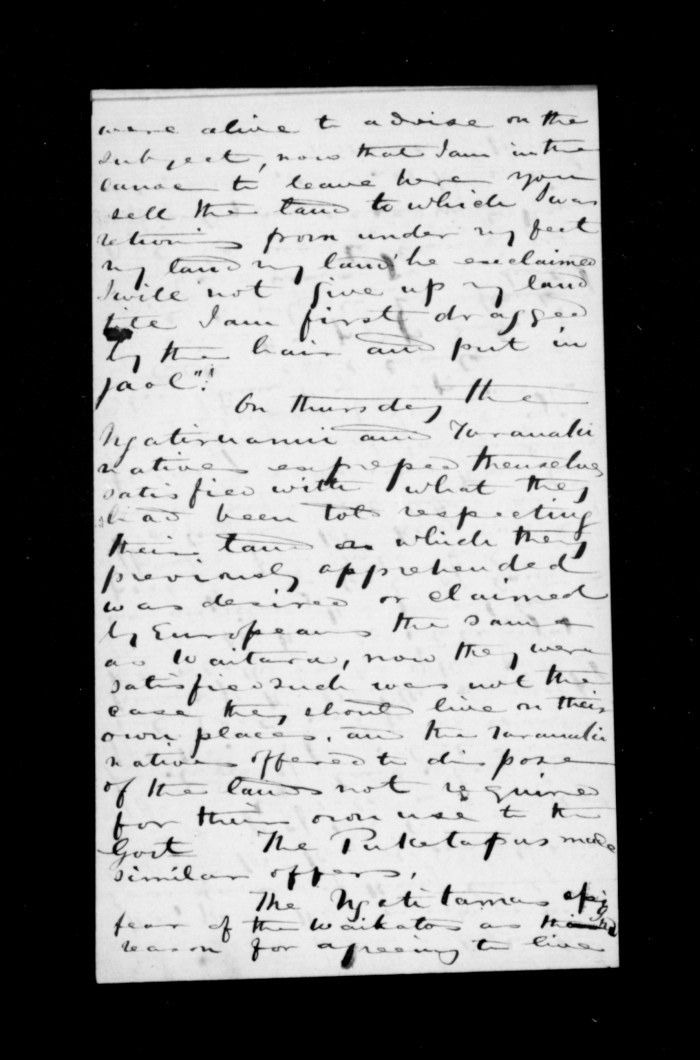 were alive to advise on the
subject, now that I am in the
canoe to leave here you
sell the land to which I was
returning from under my feet
my land my land he exclaimed
I will not give up my land
till I am first dragged
by the hair and put in
jaol"!
On thursday the
Ngatiruanui and Taranaki
natives expressed themselves
satisfied with what they
had been told respecting
their land which they
previously apprehended
was desired or claimed
by Europeans the same
as Waitara, now they were
satisfied such was not the
case they should live on their
own places, and the Taranaki
natives offered to dispose
of the land not required
for their own use to the
Govt The Puketapus made
similar offers,
The Ngatitamas
fear of the Waikatos as
reason for agreeing to live